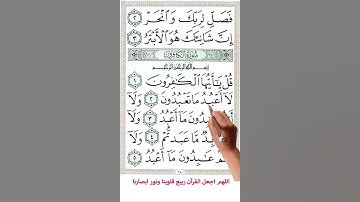 فَصَلِّ لِرَبِّكَ وَٱنْحَرْ ٢
إِنَّ شَانِئَكَ هُوَ ٱلْأَبْتَرُ ٣
سُورَةُ الكَافِرُونَ
بِسْمِ اللَّهِ الرَّحْمَٰنِ الرَّحِيمِ
قُلْ يَٰٓأَيُّهَا ٱلْكَٰفِرُونَ ١
لَآ أَعْبُدُ مَا تَعْبُدُونَ ٢ وَلَآ
عَٰبِدُونَ مَآ أَعْبُدُ ٣ وَلَآ
عَابِدٌ مَّا عَبَدتُّمْ ٤ وَلَآ
عَٰبِدُونَ مَآ أَعْبُدُ ٥
اللهم اجعل القرآن ربيع قلوبنا ونور ابصارنا